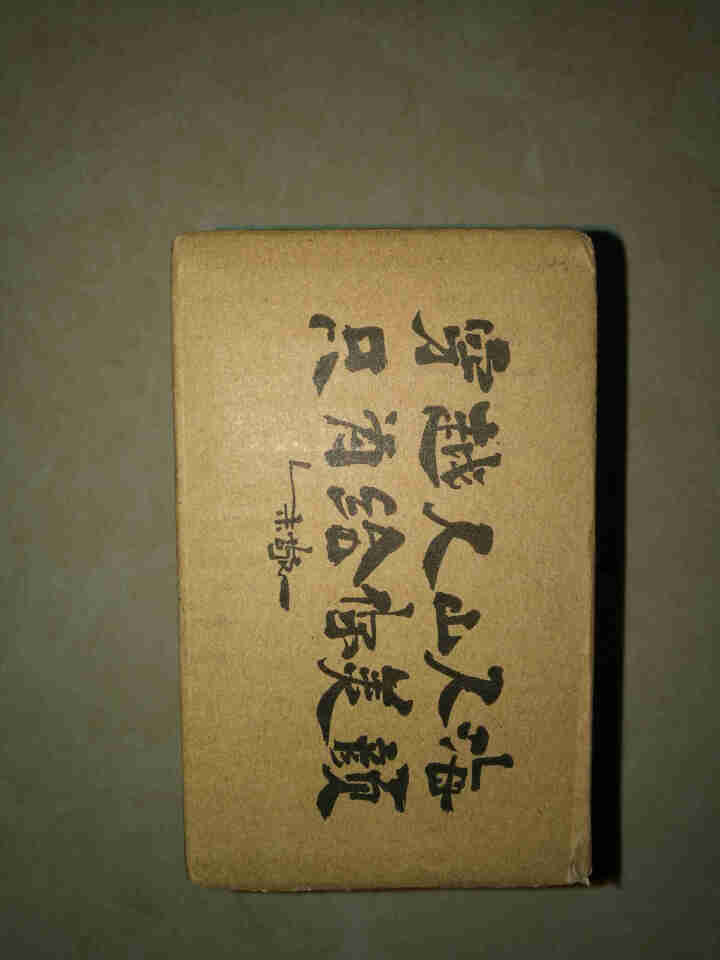 穿越人山人海
只有给你美颜
朱敬一